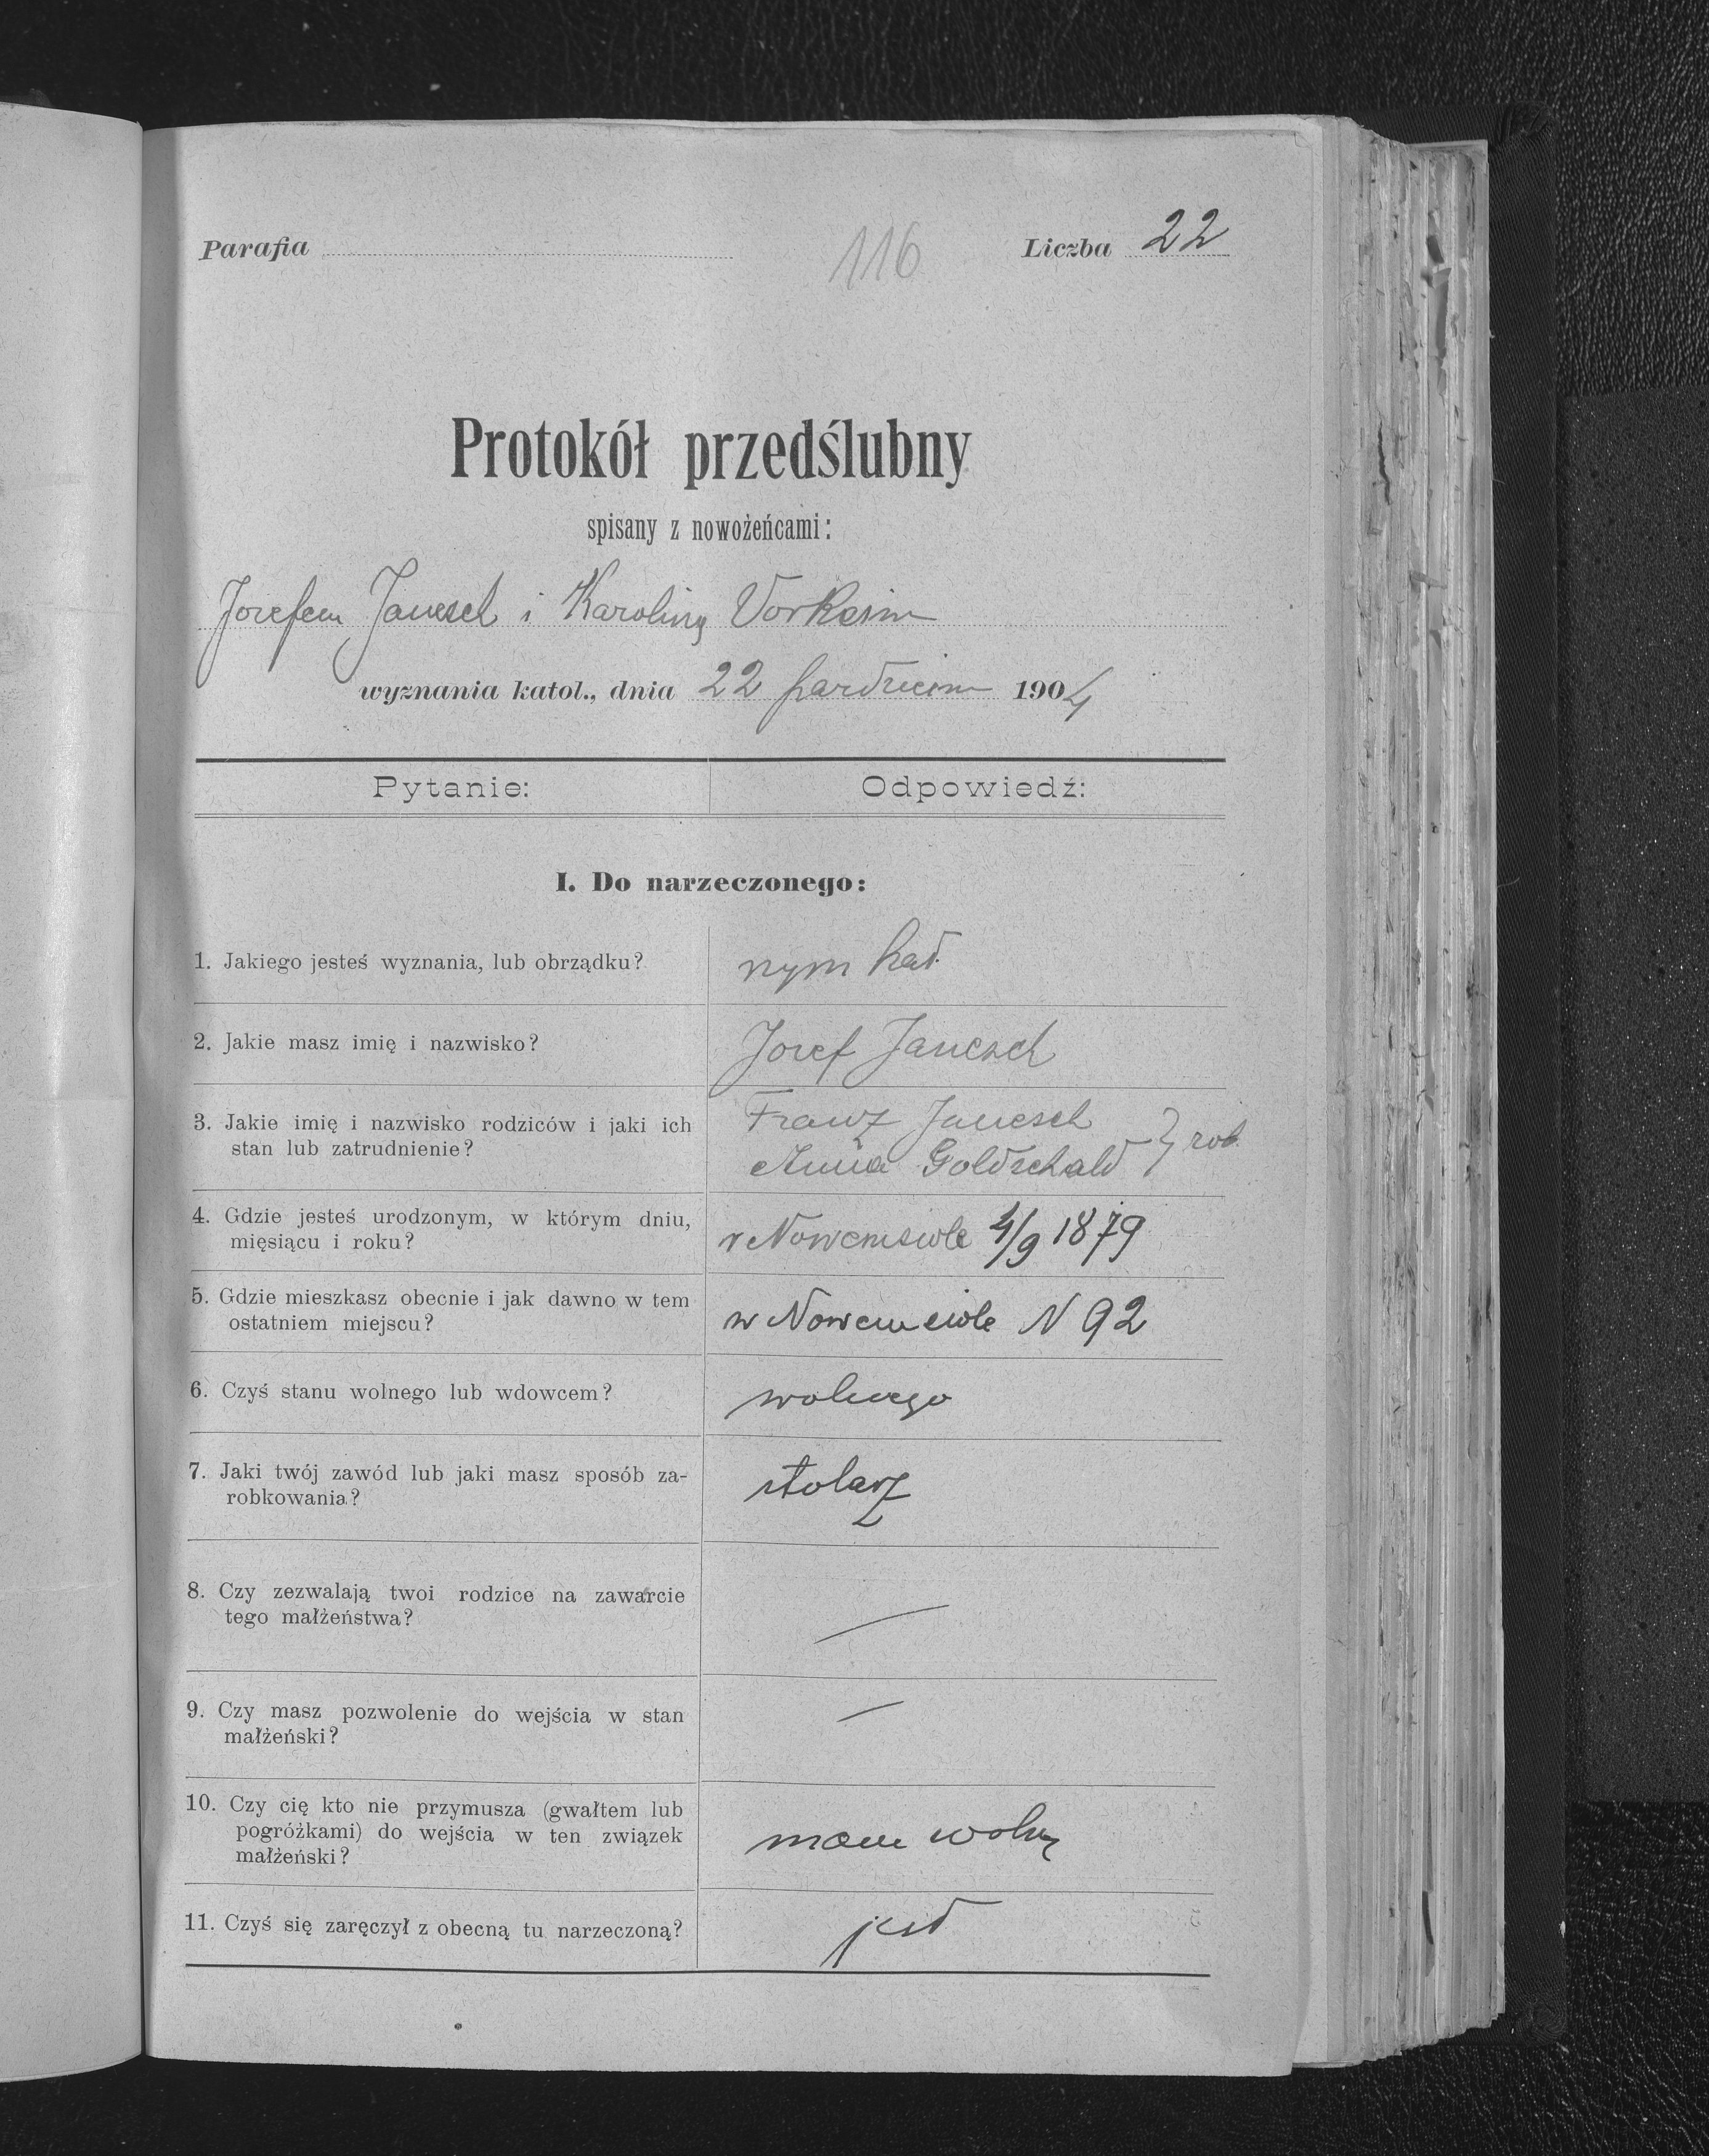 Parafia
116
Liczba 22
Protokół przedślubny
spisany z nowożeńcami:
Jozefem Janesch i Karoliną
wyznania katol., dnia 22 1904
Pytanie: Odpowiedź:
I. Do narzeczonego:
1. Jakiego jesteś wyznania, lub obrządku? rzym kat.
2. Jakie masz imię i nazwisko? Jozef Janesch
3. Jakie imię i nazwisko rodziców i jaki ich Franz Janesch
stan lub zatrudnienie? Anna Goldschald } rob.
4. Gdzie jesteś urodzonym, w którym dniu,
mięsiącu i roku? w Nowemsiole 4/9 1879
5. Gdzie mieszkasz obecnie i jak dawno w tem
ostatniem miejscu? w Nowemsiole N 92
6. Czyś stanu wolnego lub wdowcem? wolnego
7. Jaki twój zawód lub jaki masz sposób za-
robkowania? stolarz
8. Czy zezwalają twoi rodzice na zawarcie
tego małżeństwa? —
9. Czy masz pozwolenie do wejścia w stan
małżeński? —
10. Czy cię kto nie przymusza (gwałtem lub
pogróżkami) do wejścia w ten związek
małżeński? mam wolną
11. Czyś się zaręczył z obecną tu narzeczoną? jest